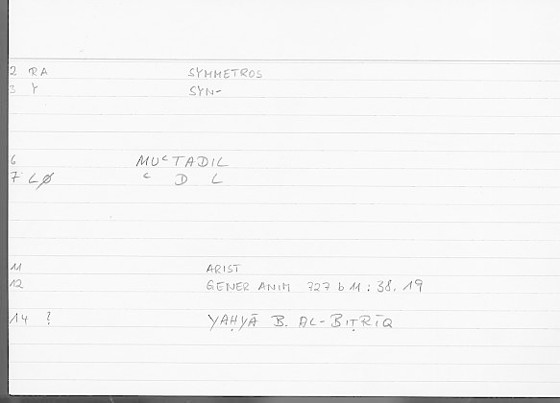 2 RA SYMMETROS
3 Y SYN-
6 MUᶜTADIL
7 LØ ᶜ D L
11 ARIST
12 GENER ANIM 727 b 11 : 38, 19
14 ? YAḤYĀ B. AL-BIṬRĪQ